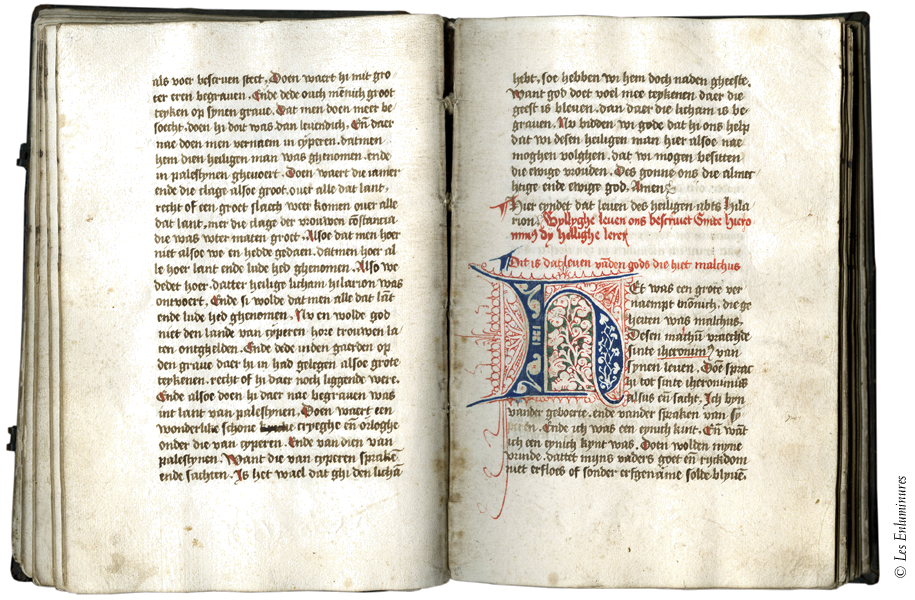 als voer bescruen steet, Doen waert hi mit gro
ter eren begrauen. Ende dede ouch mēnich groot
teyken op synen graue. Dat men doen meer be
soecht, doen hi doit was dan leuendich. Eñ daer
nae doen men vernaem in cyperen. datmen
hem dien heiligen man was ghenomen. ende
in palestynen gheuoert. Doen waert die iamer
ende die clage alsoe groot. ouer alle dat lant,
recht of een groet slach weer komen ouer alle
dat lant, mer die clage der vrouwen cōstancia
die was vter maten groet. Alsoe dat men hoer
niet alsoe we en hedde gedaen. datmen hoer al
le hoer lant ende lude hed ghenomen. Also we
dedet hoer. datter heilige licham hilarion was
ontvoert. Ende si wolde dat men alle dat lāt
ende lude hed ghenomen. Nv en wolde god
niet den lande van cyperen hore trouwen la
ten ontghelden. Ende dede inden gaerden op
den graue daer hi in had gelegen alsoe grote
teykenen. recht of hi daer noch liggende were.
Ende alsoe doen hi daer nae begrauen was
int lant van palestynen. Doen waert een
wonderlike schone cryeghe eñ orloghe
onder die van cyperen. Ende van dien van
palestynen. Want die van cyperen sprakē
ende sachten. Is het wael dat ghi den lichā
hebt, soe hebben wi hem doch naden gheeste.
Want god doet voel mee teykenen daer die
geest is bleuen. dan daer die licham is be
grauen. Nv bidden wi gode dat hi ons help
dat wi desen heiligen man hier alsoe nae
moghen volghen. dat wi mogen besitten
die ewige vrouden. Des gonne ons die almer
htige ende ewige god. Amen
Hier eyndet dat leuen des heiligen abts hila
rion. Wyllyghe leuen ons bescruet Sinte hiero
nimꝰ dy heilighe lerer
Dat is dat leuen vāden gods die hiet malchus
Et was een grote ver
naempt bīomich, die ge
heiten was malchus.
Desen malchū vraechde
sinte iheronimꝰ van
synen leuen. Doē sprac
hi tot sinte iheronimus
alsus eñ sacht, Ich byn
vander geboerte. ende vander spraken van sy
peren. Ende ich was een eynich kint. Eñ wāt
ich een eynich kynt was. Doen wolden myne
vrinde. dattet mijns vaders goet eñ rijckdom
niet erfloes of sonder erfgename solde bliuē.
© Les Enluminures